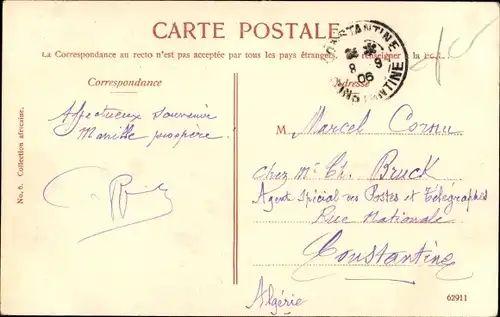 CARTE POSTALE
La Correspondance au recto n'est pas acceptée par tous les pays étrangers. renseigner la P
Correspondance
Adresse
CONSTANTINE
8 9
06
CONSTANTINE
Affectueux souvenir
M Marcel Cornu
chez Mr Ch. Bruck
Agent Spécial des Postes et Télégraphes
Rue Nationale
Constantine
Algérie
No. 6. Collection africaine.
62911